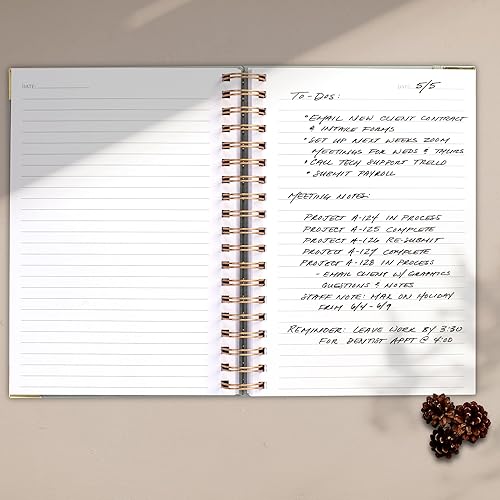 DATE:
DATE: 5/5
TO-DOS:
• EMAIL NEW CLIENT CONTRACT
& INTAKE FORMS
• SET UP NEXT WEEKS ZOOM
MEETINGS FOR WEDS & THURS
• CALL TECH SUPPORT TRELLO
• SUBMIT PAYROLL
MEETING NOTES:
PROJECT A-124 IN PROCESS
PROJECT A-125 COMPLETE
PROJECT A-126 RE-SUBMIT
PROJECT A-127 COMPLETE
PROJECT A-128 IN PROCESS
- EMAIL CLIENT W/ GRAPHICS
QUESTIONS & NOTES
STAFF NOTE: MAR ON HOLIDAY
FROM 6/4 - 6/9
REMINDER: LEAVE WORK BY 3:30
FOR DENTIST APPT @ 4:00